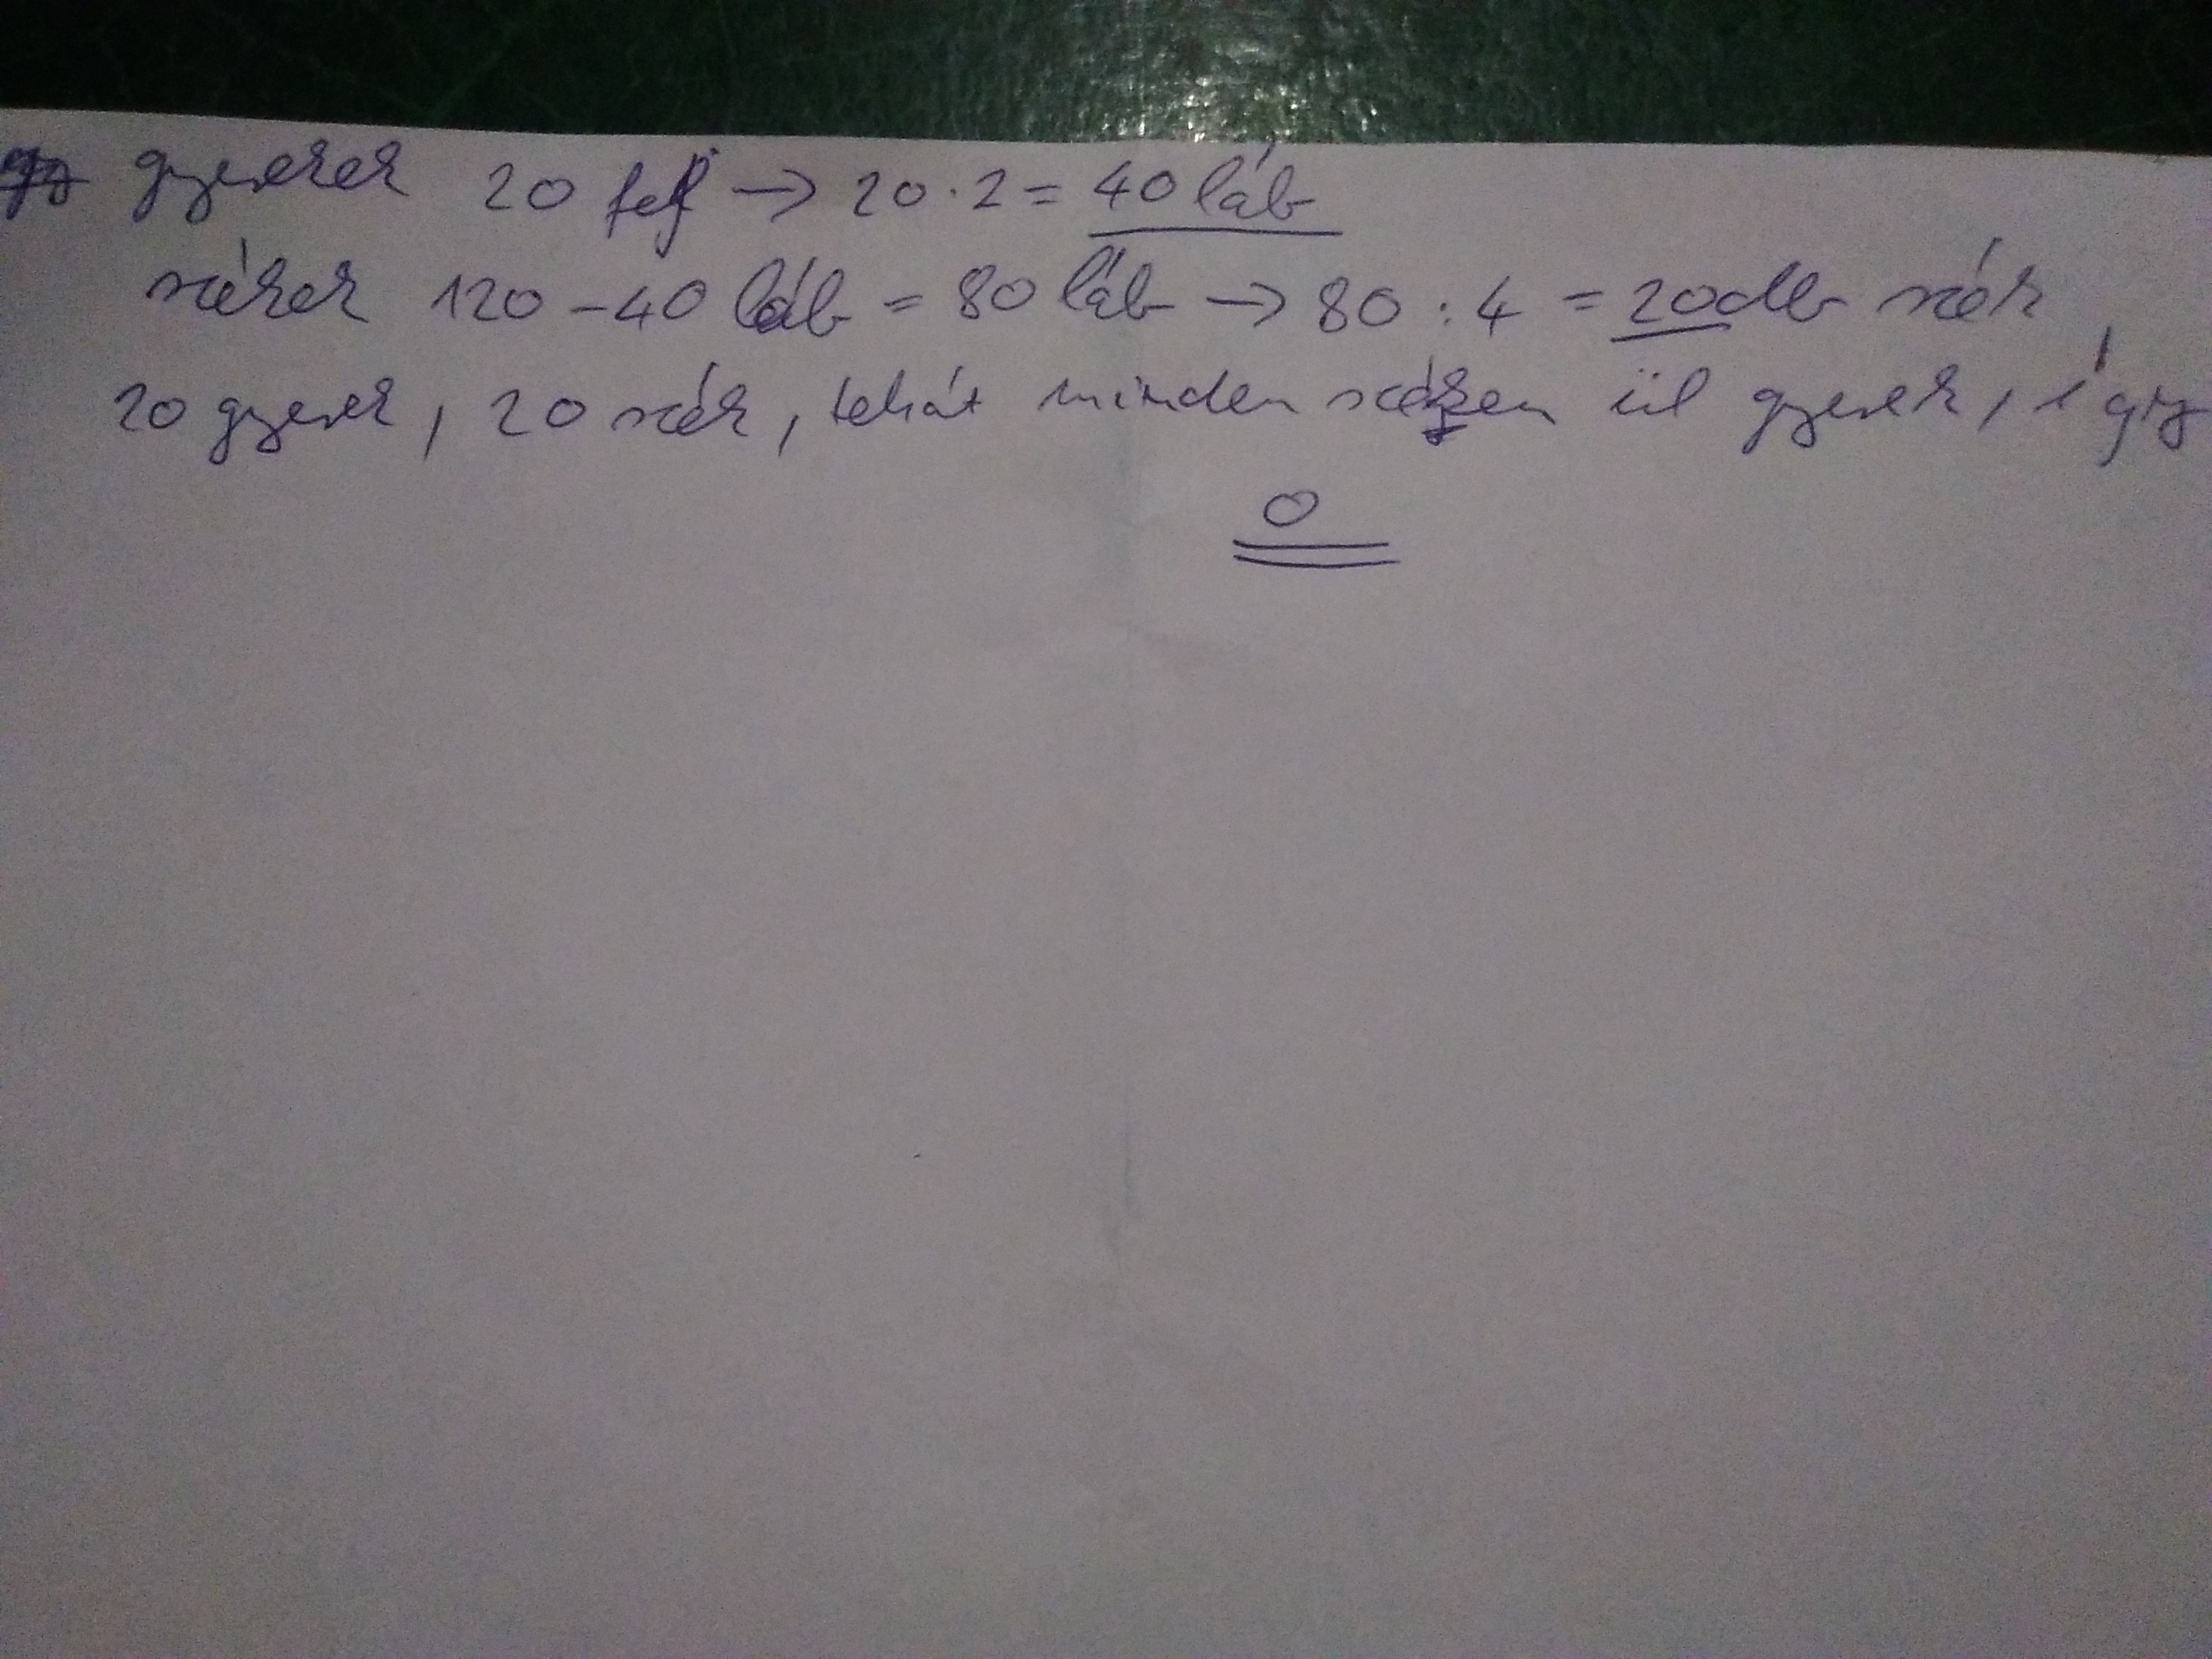 gyerekek 20 fej → 20 · 2 = 40 láb
székek 120 - 40 láb = 80 láb → 80 : 4 = 20 db szék
20 gyerek, 20 szék, tehát minden széken ül gyerek, így
0